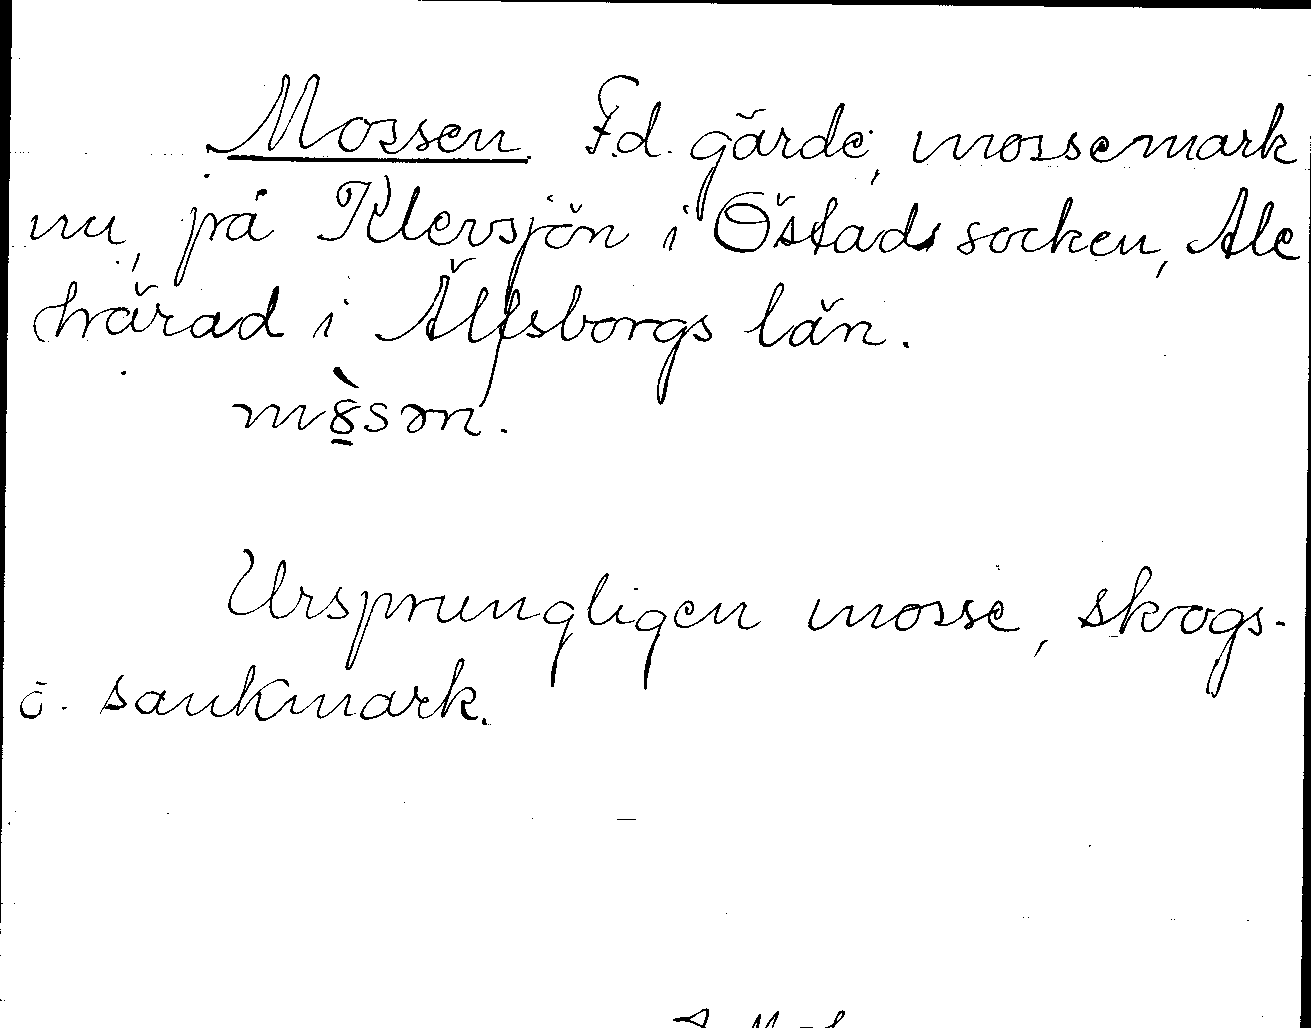 Mossen F.d. gärde, mossemark
nu, på Klevsjön i Östads socken, Ale
härad i Älfsborgs län.
mò̱sən.
Ursprungligen mosse, skogs-
o. sankmark.